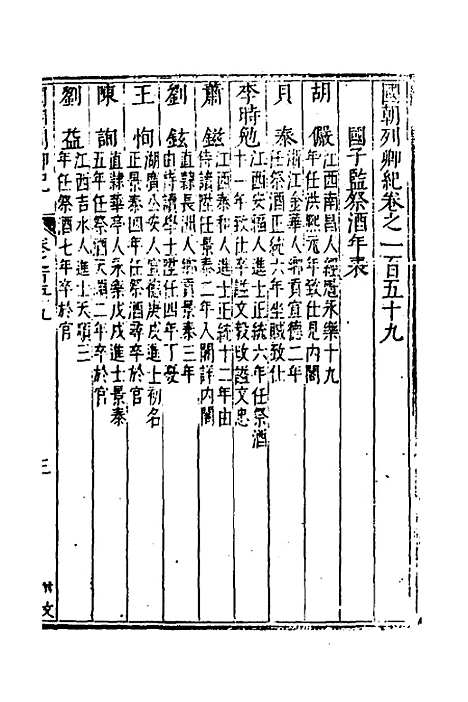 國朝列卿紀卷之一百五十九
國子監祭酒年表
胡儼 江西南昌人經魁永樂十九
年任洪熙元年致仕見内閣
貝泰 浙江金華人鄉貢宣德二年
任祭酒正統六年坐贓致仕
李時勉 江西安福人進士正統六年任祭酒
十一年致仕卒諡文毅改諡文忠
蕭鎡 江西泰和人進士正統十二年由
侍讀陞任景泰二年入閣詳内閣
劉鉉 直隸長洲人鄉貢景泰三年
由侍讀學士陞任四年丁憂
王恂 湖廣公安人宣德庚戌進士初名
正景泰四年任祭酒尋卒於官
陳詢 直隸華亭人永樂戊戌進士景泰
五年任祭酒天順二年卒於官
劉益 江西吉水人進士天順三
年任祭酒七年卒於官
三